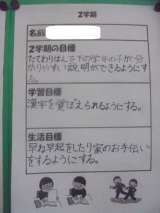 2学期
名前
2学期の目標
たてわりはんで下の学年の子が分
かりやすい説明ができるようにす
る。
学習目標
漢字を覚えられるようにする。
生活目標
早ね早起をしたり家のお手伝い
をするようにする。